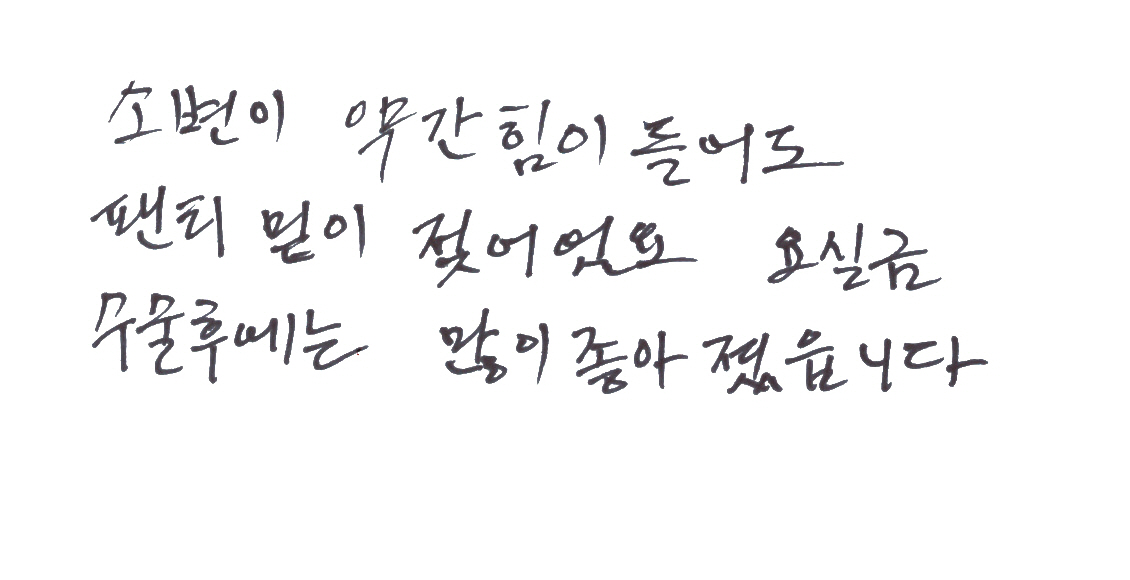 소변이 약간힘이 들어도
팬티 밑이 젖어있요 요실금
수술후에는 많이 좋아 졌읍니다